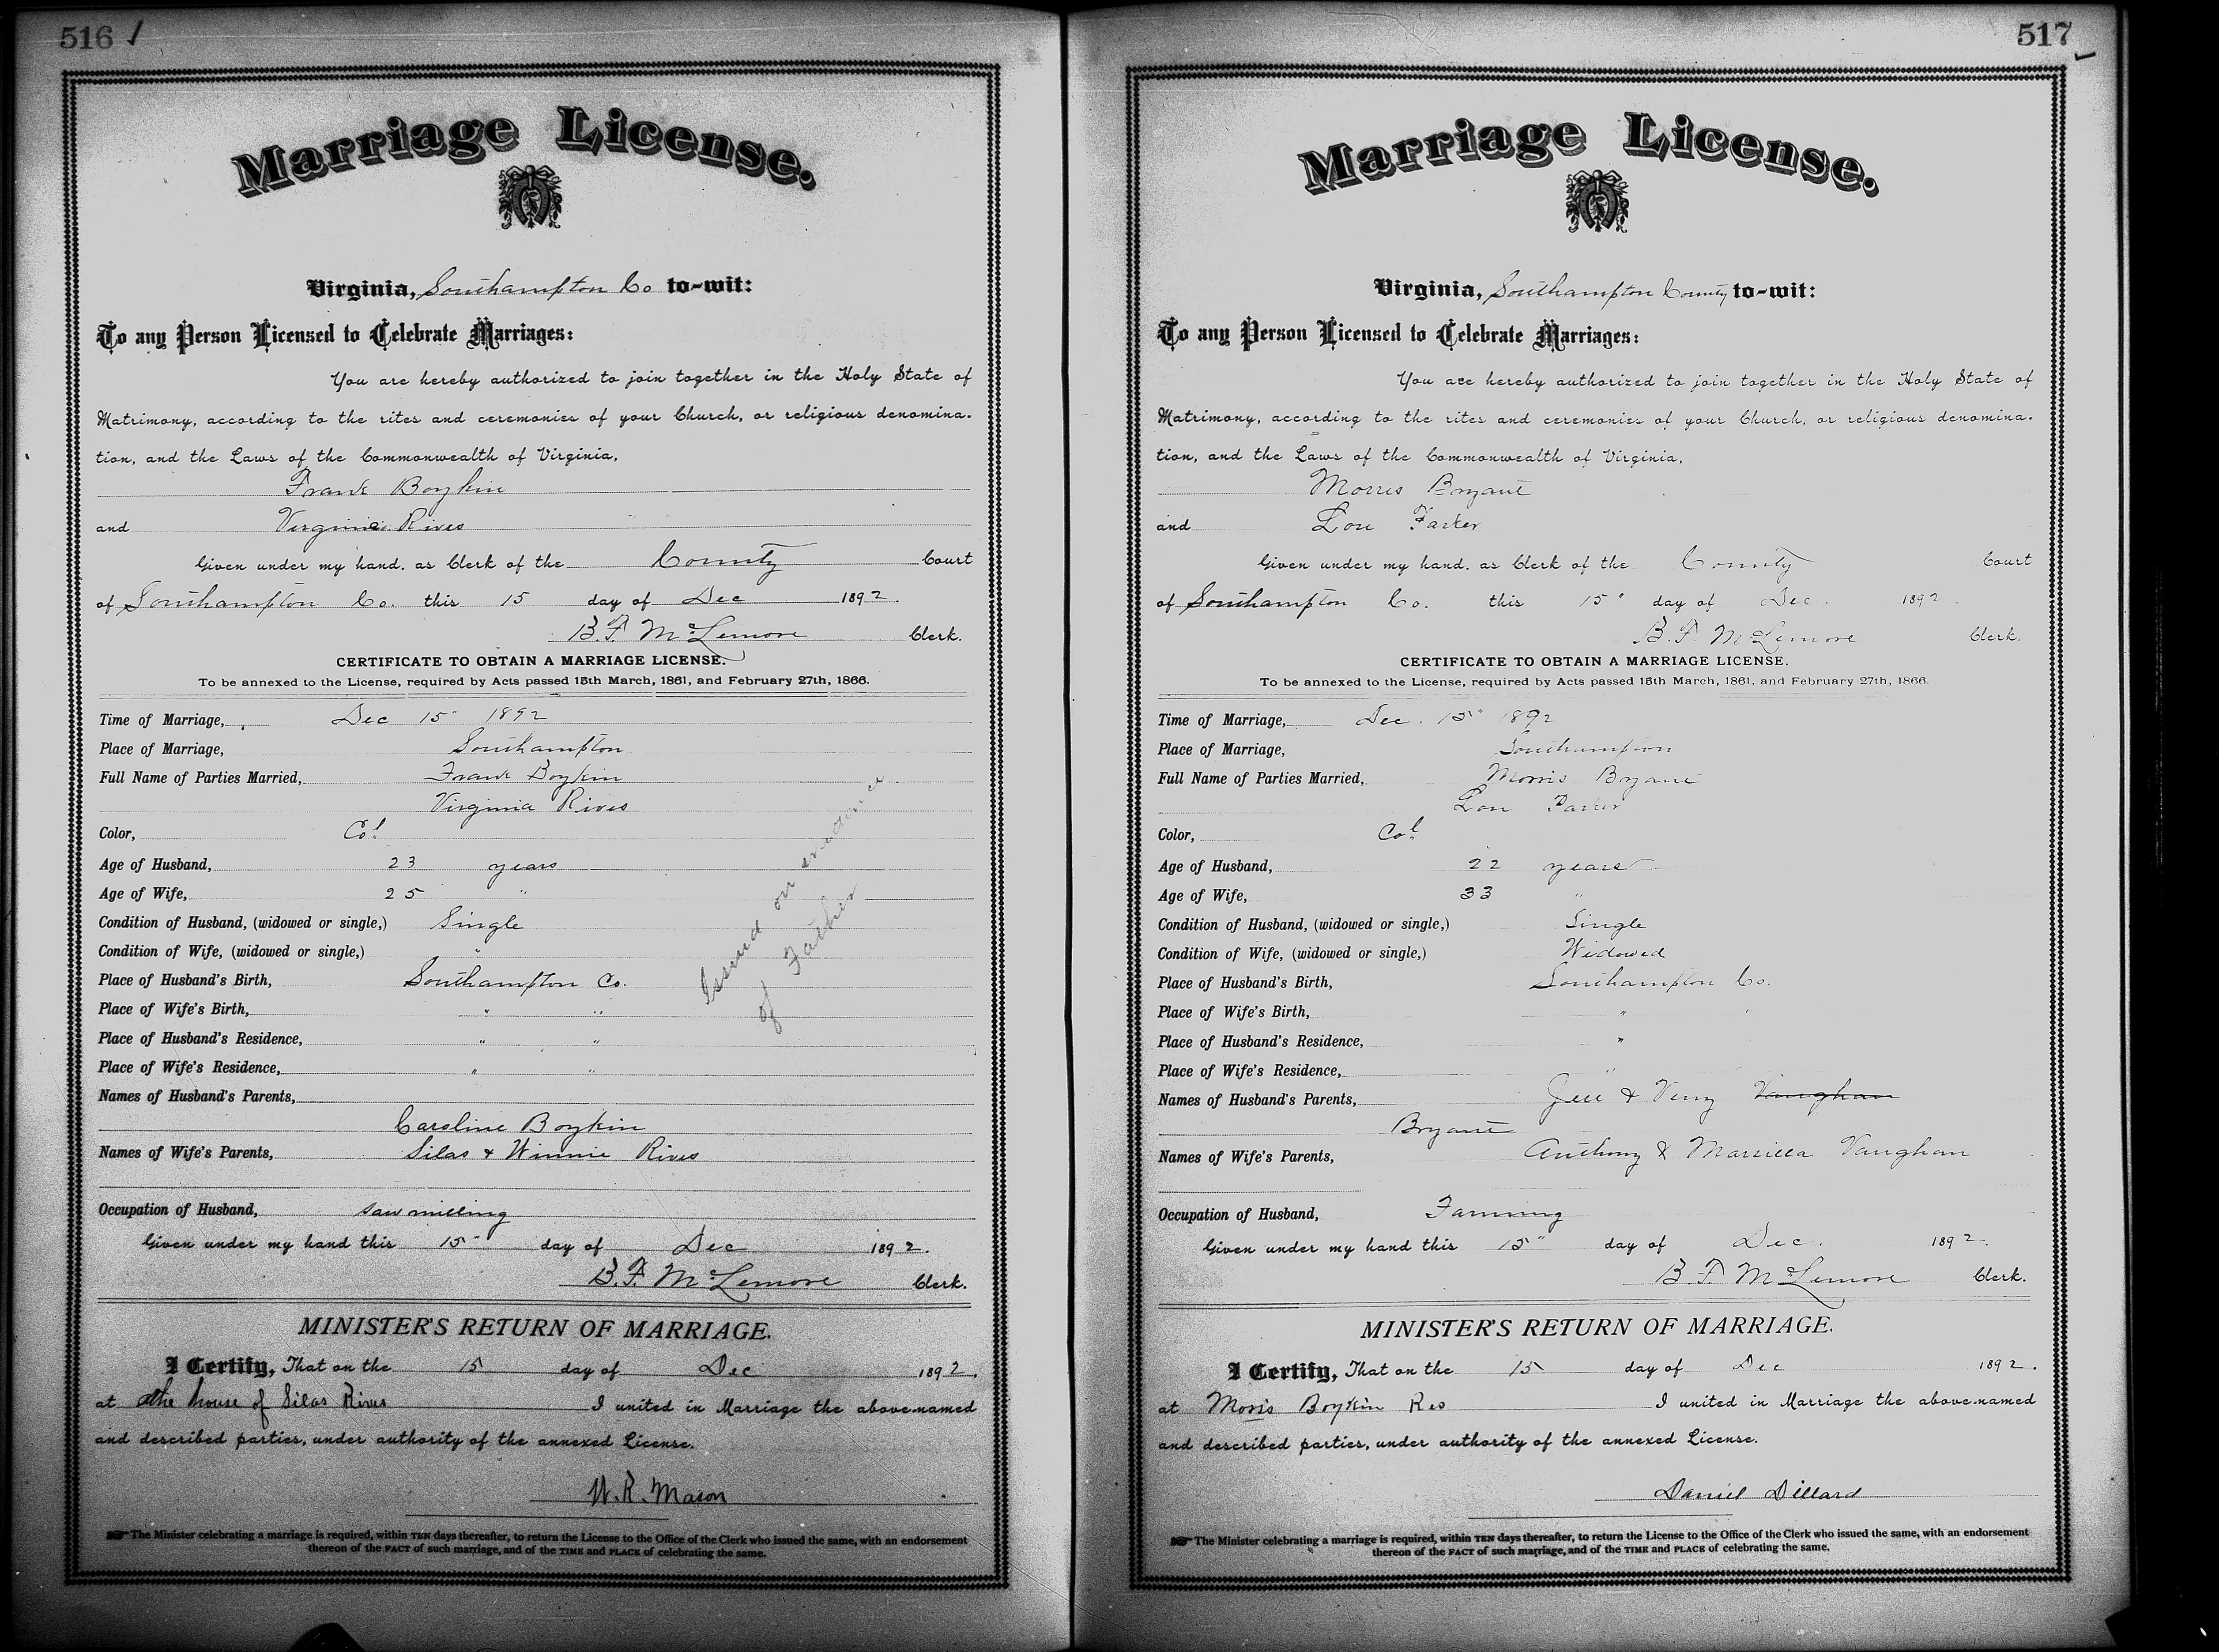 516
Marriage License.
Virginia, Southampton Co to-wit:
To any Person Licensed to Celebrate Marriages:
You are hereby authorized to join together in the Holy State of
Matrimony, according to the rites and ceremonies of your Church, or religious denomina-
tion, and the Laws of the Commonwealth of Virginia,
Frank Boykin
and Virginia Rives
Given under my hand, as Clerk of the County Court
of Southampton Co. this 15 day of Dec 1892.
B. F. McLemore Clerk.
CERTIFICATE TO OBTAIN A MARRIAGE LICENSE.
To be annexed to the License, required by Acts passed 15th March, 1861, and February 27th, 1866.
Time of Marriage, Dec 15" 1892
Place of Marriage, Southampton
Full Name of Parties Married, Frank Boykin
Virginia Rives
Color, Col
Age of Husband, 23 years
Age of Wife, 25 "
Condition of Husband, (widowed or single,) Single
Condition of Wife, (widowed or single,) "
Place of Husband's Birth, Southampton Co.
Place of Wife's Birth, " "
Place of Husband's Residence, " "
Place of Wife's Residence, " "
Names of Husband's Parents,
Caroline Boykin
Names of Wife's Parents, Silas & Winnie Rives
Occupation of Husband, saw milling
Given under my hand this 15" day of Dec 1892.
B. F. McLemore Clerk.
Issued on evidence
of Father
MINISTER'S RETURN OF MARRIAGE.
I Certify, That on the 15 day of Dec 1892.
at the house of Silas Rives I united in Marriage the above-named
and described parties, under authority of the annexed License.
W. R. Mason
The Minister celebrating a marriage is required, within TEN days thereafter, to return the License to the Office of the Clerk who issued the same, with an endorsement
thereon of the FACT of such marriage, and of the TIME and PLACE of celebrating the same.
517
Marriage License.
Virginia, Southampton County to-wit:
To any Person Licensed to Celebrate Marriages:
You are hereby authorized to join together in the Holy State of
Matrimony, according to the rites and ceremonies of your Church, or religious denomina-
tion, and the Laws of the Commonwealth of Virginia,
Morris Bryant
and Lou Parker
Given under my hand, as Clerk of the County Court
of Southampton Co. this 15" day of Dec. 1892.
B. F. McLemore Clerk.
CERTIFICATE TO OBTAIN A MARRIAGE LICENSE.
To be annexed to the License, required by Acts passed 15th March, 1861, and February 27th, 1866.
Time of Marriage, Dec. 15" 1892
Place of Marriage, Southampton
Full Name of Parties Married, Morris Bryant
Lou Parker
Color, Col
Age of Husband, 22 years
Age of Wife, 33 "
Condition of Husband, (widowed or single,) Single
Condition of Wife, (widowed or single,) Widowed
Place of Husband's Birth, Southampton Co.
Place of Wife's Birth, " "
Place of Husband's Residence, "
Place of Wife's Residence, "
Names of Husband's Parents, & Vaughan
Bryant
Names of Wife's Parents, Anthony & Vaughan
Occupation of Husband, Farming
Given under my hand this 15" day of Dec. 1892.
B. F. McLemore Clerk.
MINISTER'S RETURN OF MARRIAGE.
I Certify, That on the 15 day of Dec 1892.
at Moris Boykin Res I united in Marriage the above-named
and described parties, under authority of the annexed License.
Daniel Dillard
The Minister celebrating a marriage is required, within TEN days thereafter, to return the License to the Office of the Clerk who issued the same, with an endorsement
thereon of the FACT of such marriage, and of the TIME and PLACE of celebrating the same.